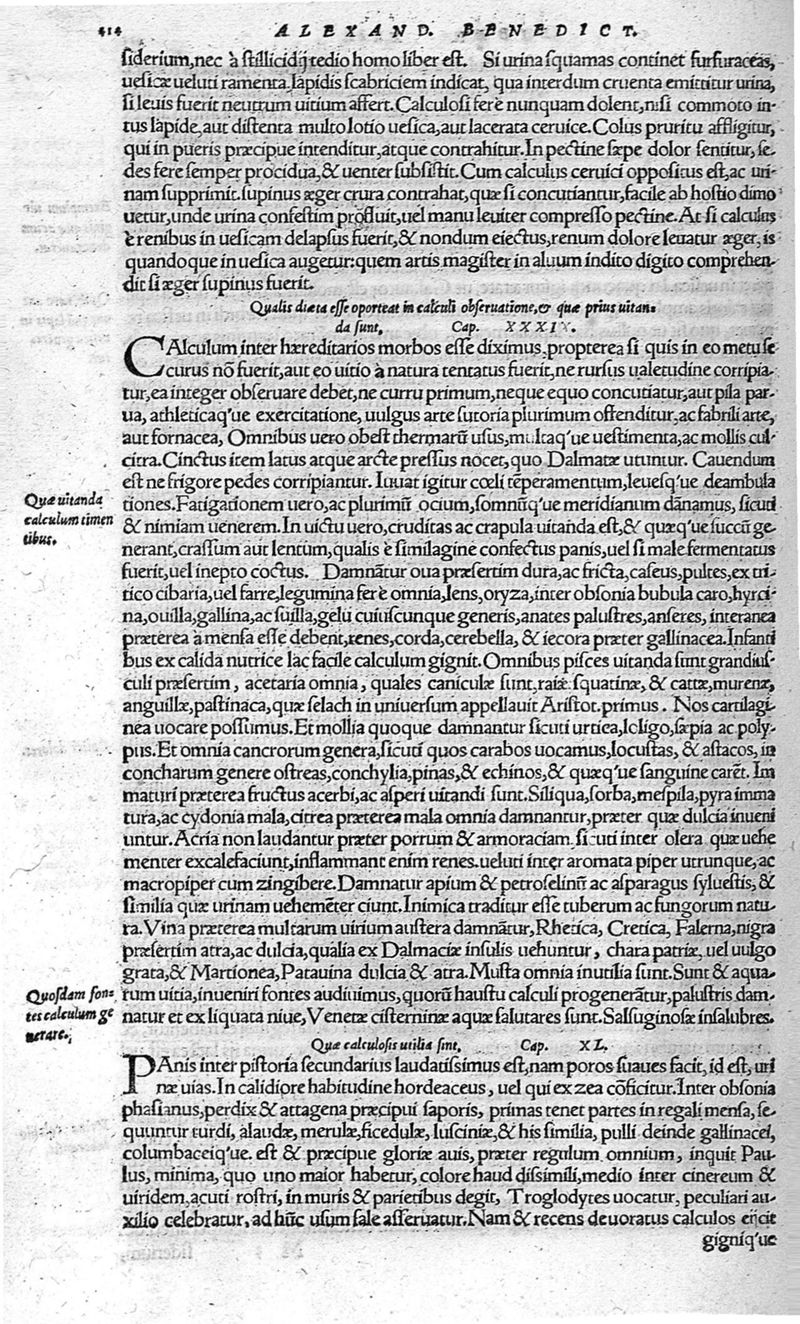 414 ALEXAND. BENEDICT.
siderium, nec à stillicidij tedio homo liber est. Si urina squamas continet furfuraceas,
uesicæ ueluti ramenta, lapidis scabriciem indicat, qua interdum cruenta emittitur urina,
si leuis fuerit neutrum uitium affert. Calculosi ferè nunquam dolent, nisi commoto in-
tus lapide, aut distenta multo lotio uesica, aut lacerata ceruice. Colus pruritu affligitur,
qui in pueris præcipue intenditur, atque contrahitur. In pectine sæpe dolor sentitur, se-
des fere semper procidua, & uenter subsistit. Cum calculus ceruici oppositus est, ac uri-
nam supprimit, supinus æger crura contrahat, quæ si concutiantur, facile ab hostio dimo
uetur, unde urina confestim profluit, uel manu leuiter compresso pectine. At si calculus
è renibus in uesicam delapsus fuerit, & nondum eiectus, renum dolore leuatur æger, is
quandoque in uesica augetur: quem artis magister in aluum indito digito comprehen-
dit si æger supinus fuerit.
Qualis diæta esse oporteat in calculi obseruatione, & quæ prius uitan-
da sunt, Cap. XXXIX.
CAlculum inter hæreditarios morbos esse diximus, propterea si quis in eo metu se
curus nõ fuerit, aut eo uitio à natura tentatus fuerit, ne rursus ualetudine corripia-
tur, ea integer obseruare debet, ne curru primum, neque equo concutiatur, aut pila par-
ua, athleticaq'ue exercitatione, uulgus arte sutoria plurimum offenditur, ac fabrili arte,
aut fornacea, Omnibus uero obest thermarũ usus, multaq'ue uestimenta, ac mollis cul-
citra. Cinctus item latus atque arcte pressus nocet, quo Dalmatæ utuntur. Cauendum
est ne frigore pedes corripiantur. Iuuat igitur cœli tẽperamentum, leuesq'ue deambula
Quæ uitanda
calculum timen
tibus.
tiones. Fatigationem uero, ac plurimũ ocium, somnũq'ue meridianum dãnamus, sicuti
& nimiam uenerem. In uictu uero, cruditas ac crapula uitanda est, & quæq'ue succũ ge-
nerant, crassum aut lentum, qualis è similagine confectus panis, uel si male fermentatus
fuerit, uel inepto coctus. Damnãtur oua præsertim dura, ac fricta, caseus, pultes, ex tri-
tico cibaria, uel farre, legumina ferè omnia, lens, oryza, inter obsonia bubula caro, hyrci-
na, ouilla, gallina, ac suilla, gelu cuiuscunque generis, anates palustres, anseres, interanea
præterea à mensa esse debent, renes, corda, cerebella, & iecora præter gallinacea. Infanti
bus ex calida nutrice lac facile calculum gignit. Omnibus pisces uitanda sunt grandius-
culi præsertim, acetaria omnia, quales caniculæ sunt, raiæ squatinæ, & cattæ, murenæ,
anguillæ, pastinaca, quæ selach in uniuersum appellauit Aristot. primus. Nos cartilagi-
nea uocare possumus. Et mollia quoque damnantur sicuti urtica, loligo, sæpia ac poly-
pus. Et omnia cancrorum genera, sicuti quos carabos uocamus, locustas, & astacos, in
concharum genere ostreas, conchylia, pinas, & echinos, & quæq'ue sanguine carẽt. Im
maturi præterea fructus acerbi, ac asperi uitandi sunt. Siliqua, sorba, mespila, pyra imma
tura, ac cydonia mala, citrea præterea mala omnia damnantur, præter quæ dulcia inueni
untur. Acria non laudantur præter porrum & armoraciam, sicuti inter olera quæ uehe
menter excalefaciunt, inflammant enim renes, ueluti inter aromata piper utrunque, ac
macropiper cum zingibere. Damnatur apium & petroselinũ ac asparagus syluestis, &
similia quæ urinam uehemẽter ciunt. Inimica traditur esse tuberum ac fungorum natu-
ra. Vina præterea multarum uirium austera damnãtur, Rhetica, Cretica, Falerna, nigra
præsertim atra, ac dulcia, qualia ex Dalmaciæ insulis uehuntur, chara patriæ, uel uulgo
grata, & Martionea, Patauina dulcia & atra. Musta omnia inutilia sunt. Sunt & aqua-
Quosdam fon-
tes calculum ge
nerare.
rum uitia, inueniri fontes audiuimus, quorũ haustu calculi progenerãtur, palustris dam-
natur et ex liquata niue, Venetæ cisterninæ aquæ salutares sunt. Salsuginosæ insalubres.
Quæ calculosis utilia sint, Cap. XL.
PAnis inter pistoria secundarius laudatissimus est, nam poros suaues facit, id est, uri
næ uias. In calidiore habitudine hordeaceus, uel qui ex zea cõficitur. Inter obsonia
phasianus, perdix & attagena præcipui saporis, primas tenet partes in regali mensa, se-
quuntur turdi, alaudæ, merulæ, ficedulæ, lusciniæ, & his similia, pulli deinde gallinacei,
columbaceiq'ue. est & præcipue gloriæ auis, præter regulum omnium, inquit Pau-
lus, minima, quo uno maior habetur, colore haud dissimili, medio inter cinereum &
uiridem, acuti rostri, in muris & parietibus degit, Troglodytes uocatur, peculiari au-
xilio celebratur, ad hũc usum sale asseruatur. Nam & recens deuoratus calculos eijcit
gigniq'ue